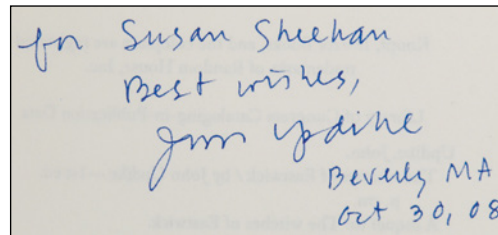 for Susan Sheehan
Best wishes,
John Updike
Beverly MA
Oct 30, 08